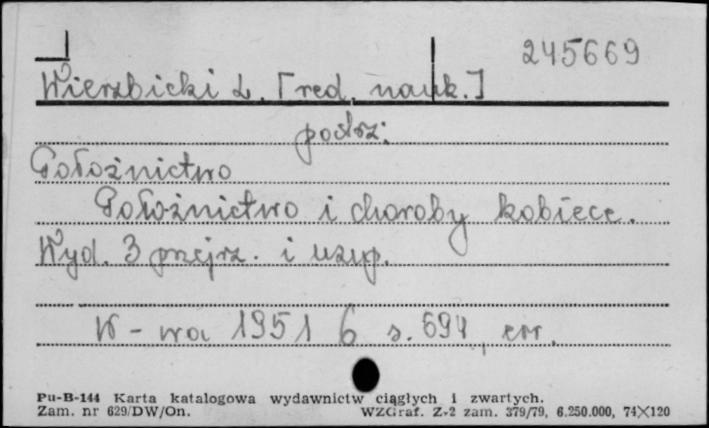 245669
Wierzbicki L. [red. nauk.]
podrz:
Położnictwo
Położnictwo i choroby kobiece.
Wyd. 3 przejrz. i uzup.
W-wa 1951 6 s. 694,
Pu-B-144 Karta katalogowa wydawnictw ciągłych i zwartych.
Zam. nr 629/DW/On. WZGraf. Z-2 zam. 379/79, 6.250.000, 74×120